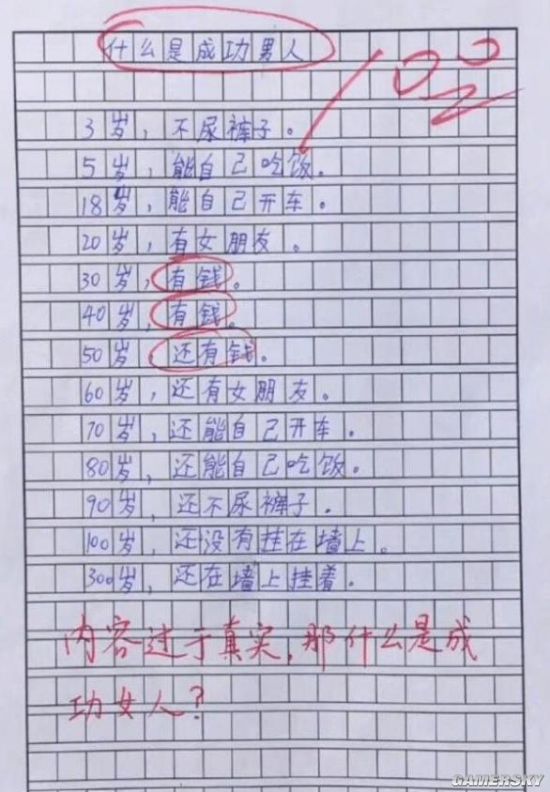 什么是成功男人
100
3岁，不尿裤子。
5岁，能自己吃饭。
18岁，能自己开车。
20岁，有女朋友。
30岁，有钱。
40岁，有钱。
50岁，还有钱。
60岁，还有女朋友。
70岁，还能自己开车。
80岁，还能自己吃饭。
90岁，还不尿裤子。
100岁，还没有挂在墙上。
300岁，还在墙上挂着。
内容过于真实，那什么是成
功女人？
GAMERSKY